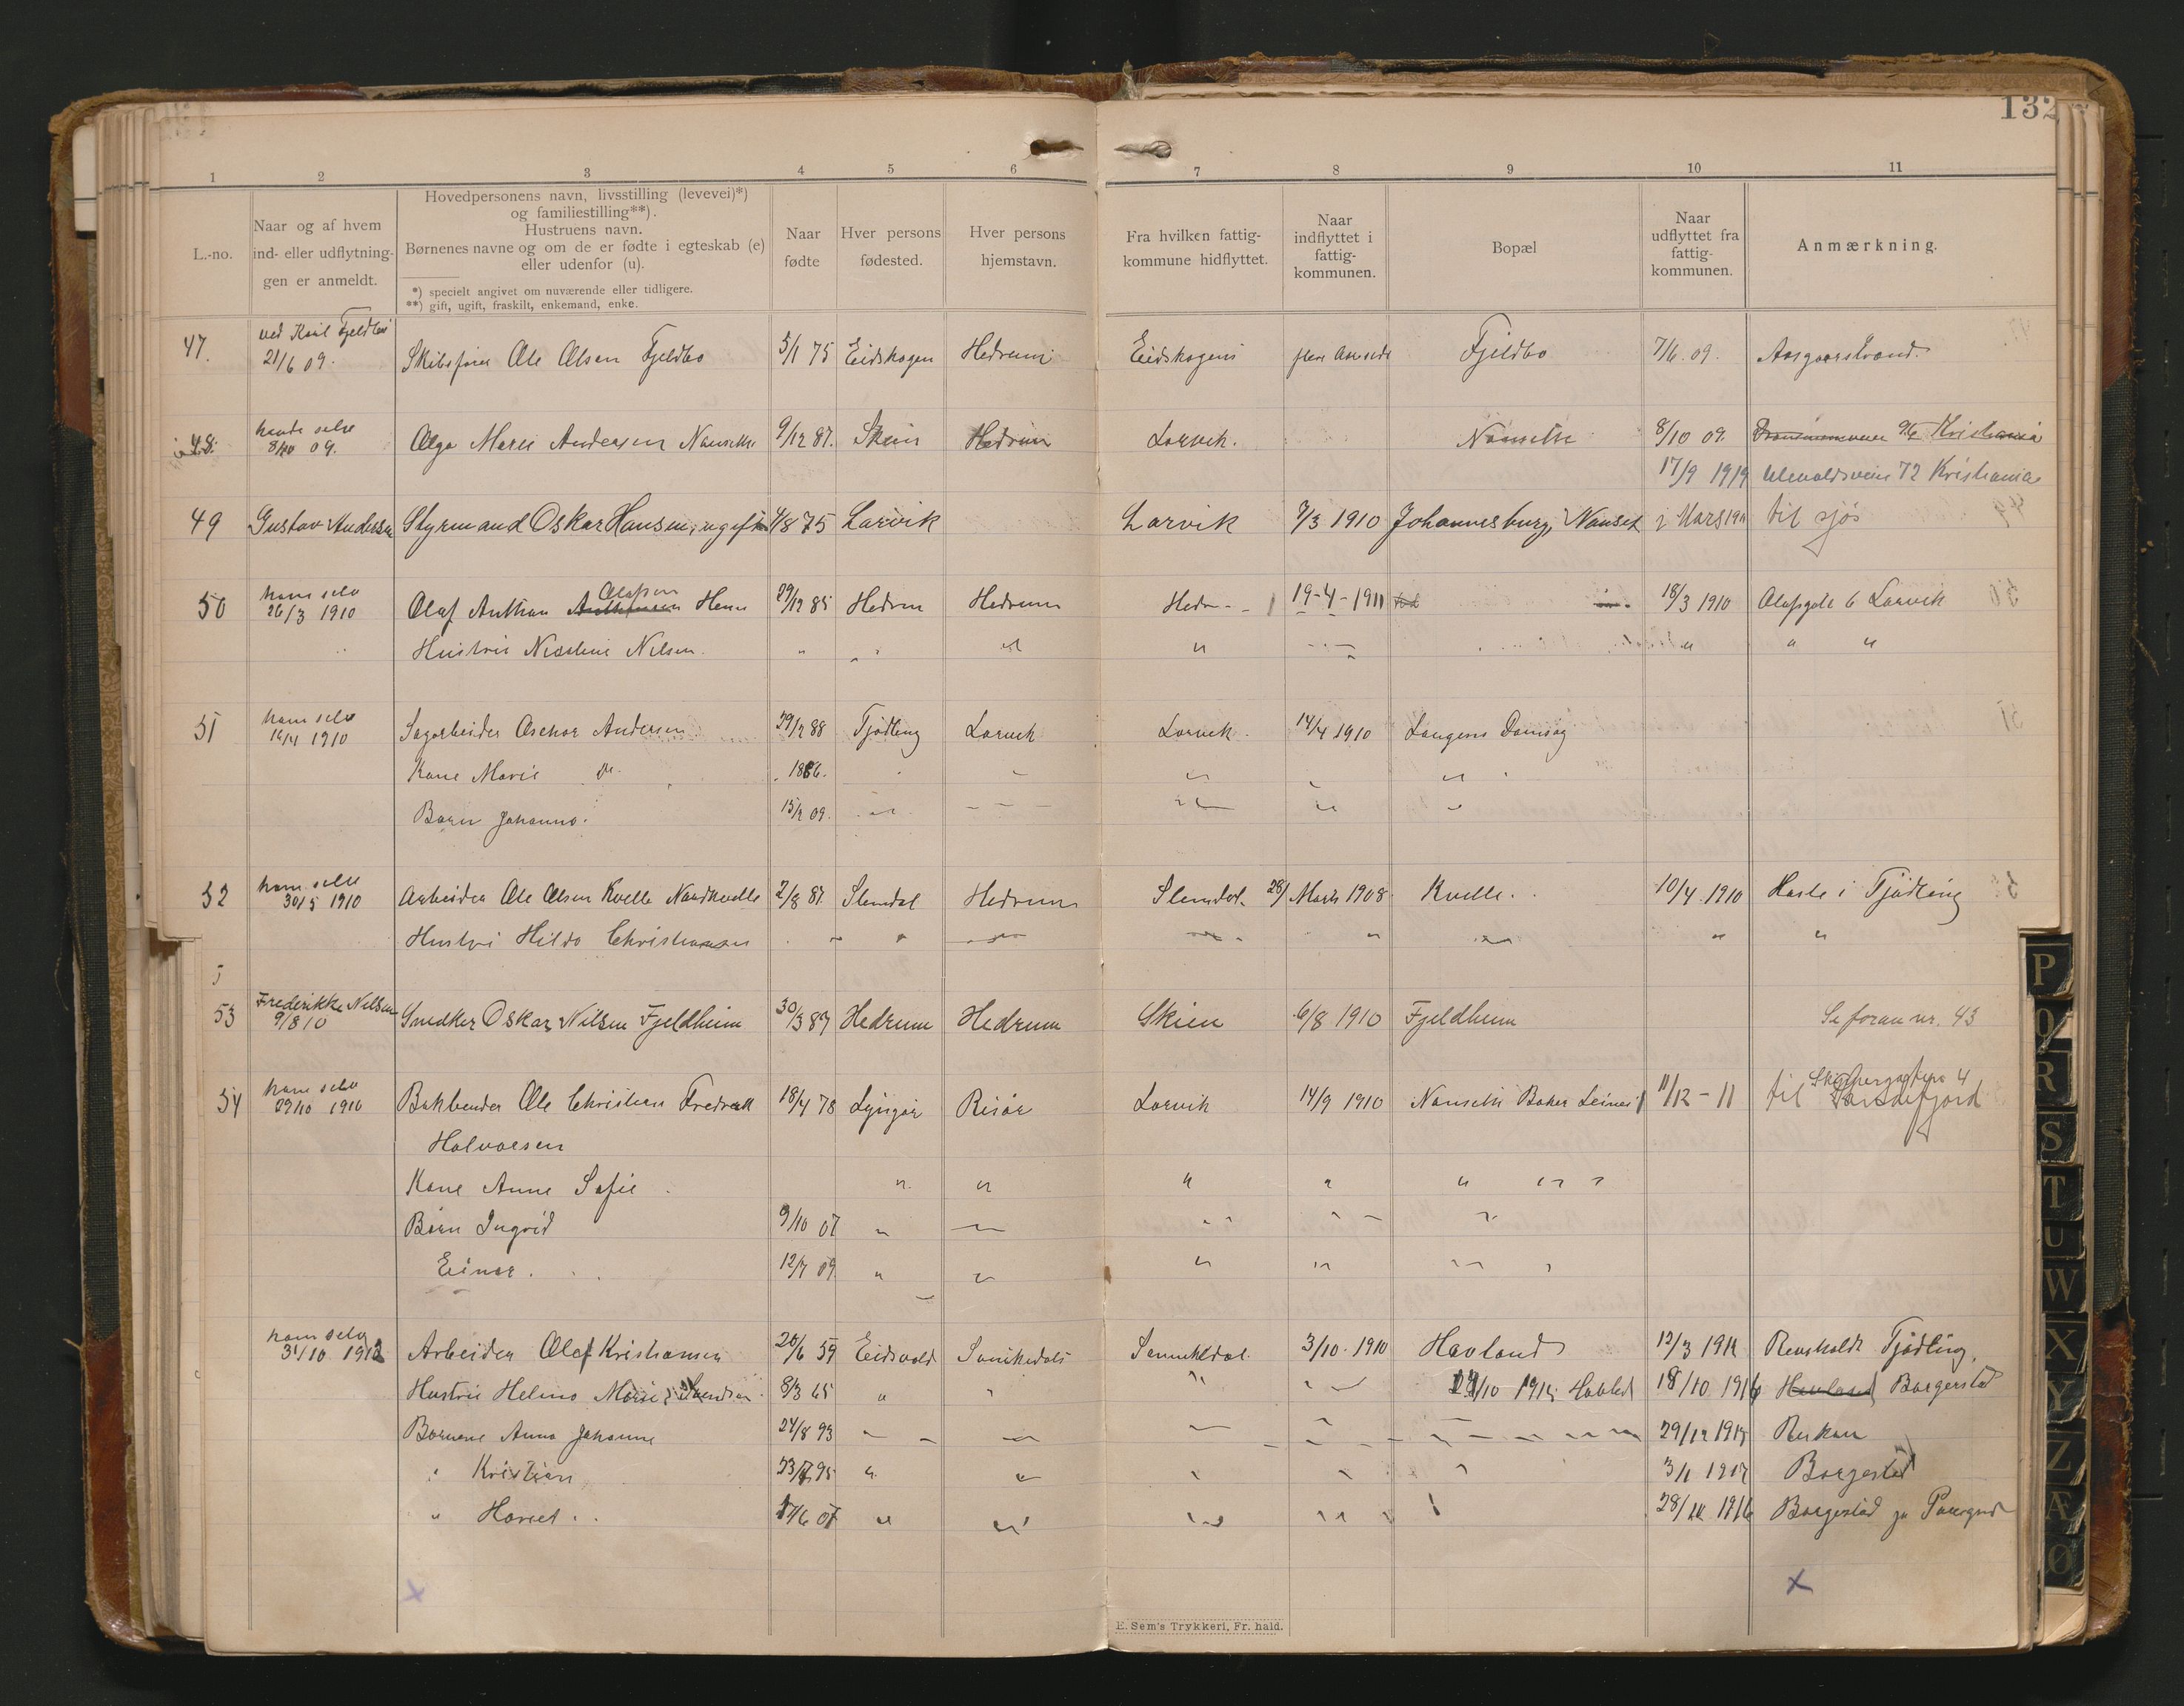 132
1 2 3 4 5 6 7 8 9 10 11
L.-no.
Naar og af hvem
ind- eller udflytnin-
gen er anmeldt.
Hovedpersonens navn, livsstilling (levevei)*)
og familiestilling**).
Hustruens navn.
Børnenes navne og om de er fødte i egteskab (e)
eller udenfor (u).
*) specielt angivet om nuværende eller tidligere.
**) gift, ugift, fraskilt, enkemand, enke.
Naar
fødte
Hver persons
fødested.
Hver persons
hjemstavn.
Fra hvilken fattig-
kommune hidflyttet.
Naar
indflyttet i
fattig-
kommunen.
Bopæl
Naar
udflyttet fra
fattig-
kommunen.
Anmærkning.
ved Karl Fjeldbo
47. 21/6 09. Skibsfører Ole Olsen Fjeldbo 5/1 75 Eidskogen Hedrum Eidskogen Fjeldbo 7/6. 09. Aasgaarstrand.
48. 8/10 09. Olga Marie Andersen Nansethe 9/12 87. Skien Hedrum Larvik. Nansethe 8/10 09. Kristiania
17/9 1919 Ulevoldsveien 72 Kristiania
49 Gustav Andersen Styrmand Oskar Hansen, ugift 4/8 75 Larvik Larvik 7/3 1910 Johannesburg, Nanset i Mars 1911 til sjøs
ham selv Olafsen
50 26/3 1910 Olaf Anthon Hem 29/12 85 Hedrum Hedrum Hedr-- 19-4-1911 18/3 1910 Olafsgate 6 Larvik
Hustru Nilsen. " " " " "
ham selv
51 14/4 1910 Sagarbeider Oschar Andersen 29/12 88 Tjødling Larvik Larvik. 14/4 1910 Langesø Damsag
Kone Marie do. 1886. " " "
Barn Johanna. 15/2 09. " " " "
ham selv
52 30/5 1910 Arbeider Ole Olsen Kvelle Nordkvelle 2/8 87. Slemdal Hedrum Slemdal. 28/ Marts 1908. Kvelle. 10/4. 1910 Haste i Tjødling
Hustru Hilda Christiansen " " " " " " "
Frederikke Nilsen
53 9/8 10 Snedker Oskar Nilsen Fjeldheim 30/3 87 Hedrum Hedrum Skien 6/8 1910 Fjeldheim Se foran nr. 43
ham selv 4
54 29/10 1910 Bokbinder Ole Christian Fredrik 18/4 78 Lyngør Risør Larvik 14/9 1910 Nansethe Baker 11/12 - 11 til Sandefjord
Halvorsen
Kone Anne Sofie. " " " " " " "
Børn Ingrid 9/10 07 " " " " "
Einar. 12/7 09. " " " " "
ham selv
31/10 1912 Arbeider Olaf Kristiansen 20/6 59 Eidsvold Sannikedal Sannikedal. 3/10. 1910 Havland 12/3 1912 Tjødling,
Hustru Helma Marie Svendsen. 8/3 65 " " " " /10 1915 18/10 1916 Borgestad
Børnene Anna Johanne 24/8 93 " " " " 29/12 1917 Rjukan
" Kristian 95 " " " " " 3/1 1917 Borgestad
" 17/6 07 " " " " 28/10 1916 Borgestad pr Porsgrund
E. Sem's Trykkeri, Fr. hald.
P
Q
R
S
T
U
W
X
Y
Z
Æ
Ø